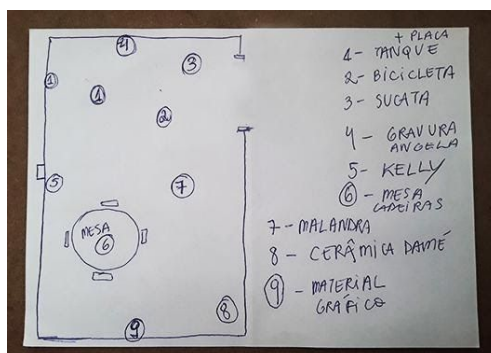 4
1
3
1
2
5
7
MESA
6
8
9
+ PLACA
1 - TANQUE
2 - BICICLETA
3 - SUCATA
4 - GRAVURA
ANGELA
5 - KELLY
6 - MESA
CADEIRAS
7 - MALANDRA
8 - CERÂMICA DAMÉ
9 - MATERIAL
GRÁFICO